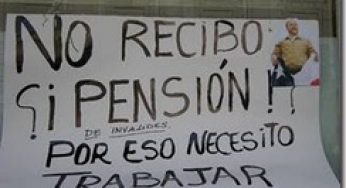 NO RECIBO
¡¡ PENSIÓN !!
DE INVALIDES.
POR ESO NECESITO
TRABAJAR